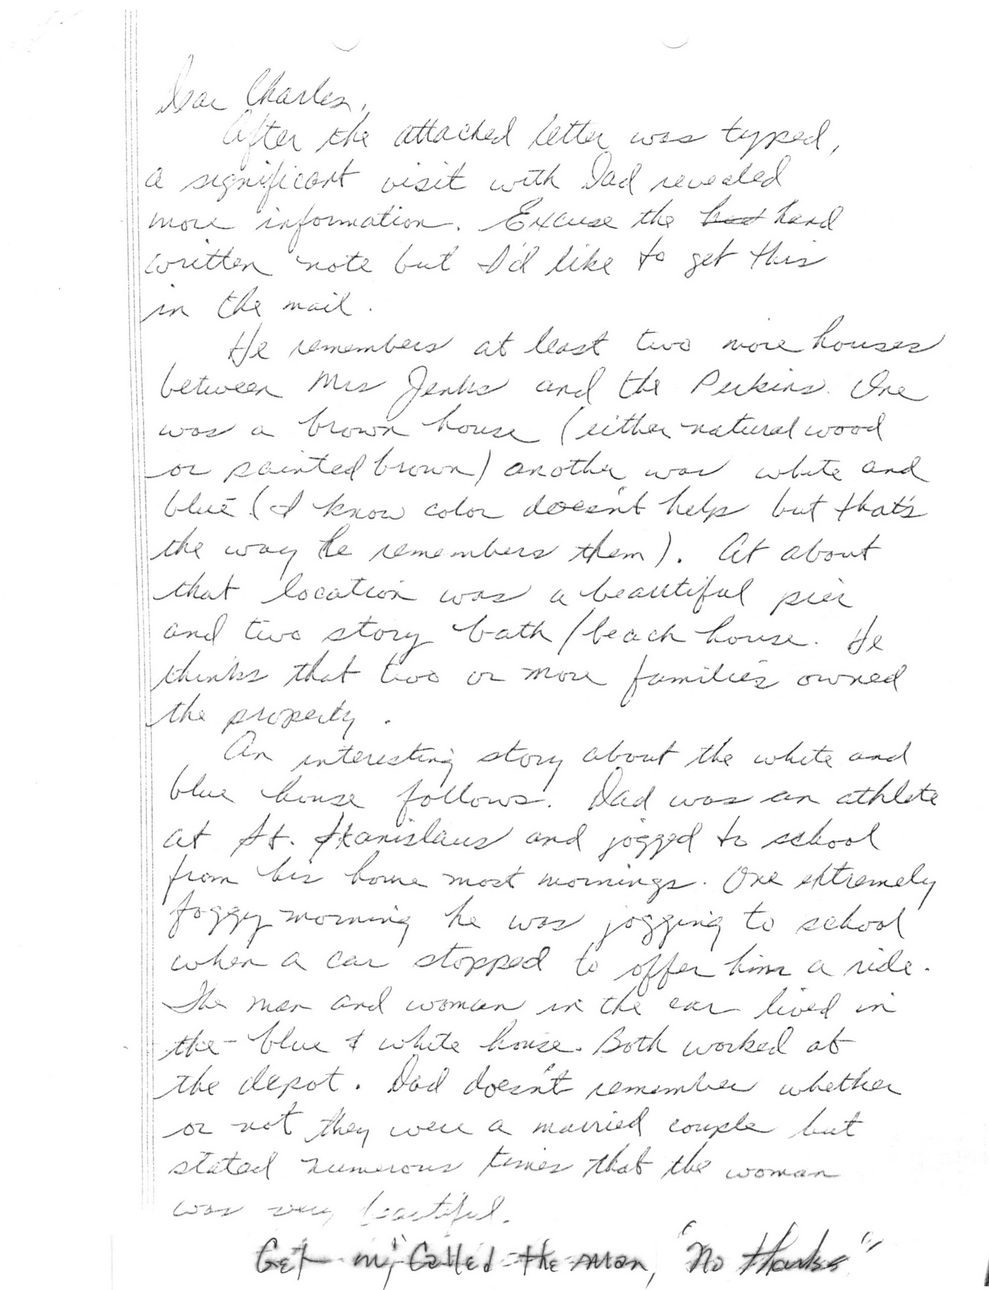 Dear Charles,
After the attached letter was typed,
a significant visit with Dad revealed
more information. Excuse the hand
written note but I'd like to get this
in the mail.
He remembers at least two more houses
between Mrs Jenks and the Perkins. One
was a brown house (either natural wood
or painted brown) another was white and
blue (I know color doesn't help but that's
the way he remembers them). At about
that location was a beautiful pier
and two story bath/beach house. He
thinks that two or more families owned
the property.
An interesting story about the white and
blue house follows. Dad was an athlete
at St. Stanislaus and jogged to school
from his home most mornings. One extremely
foggy morning he was jogging to school
when a car stopped to offer him a ride.
The man and woman in the car lived in
the blue & white house. Both worked at
the depot. Dad doesn't remember whether
or not they were a married couple but
stated numerous times that the woman
was very beautiful.
"Get in," called the man, "No thanks"